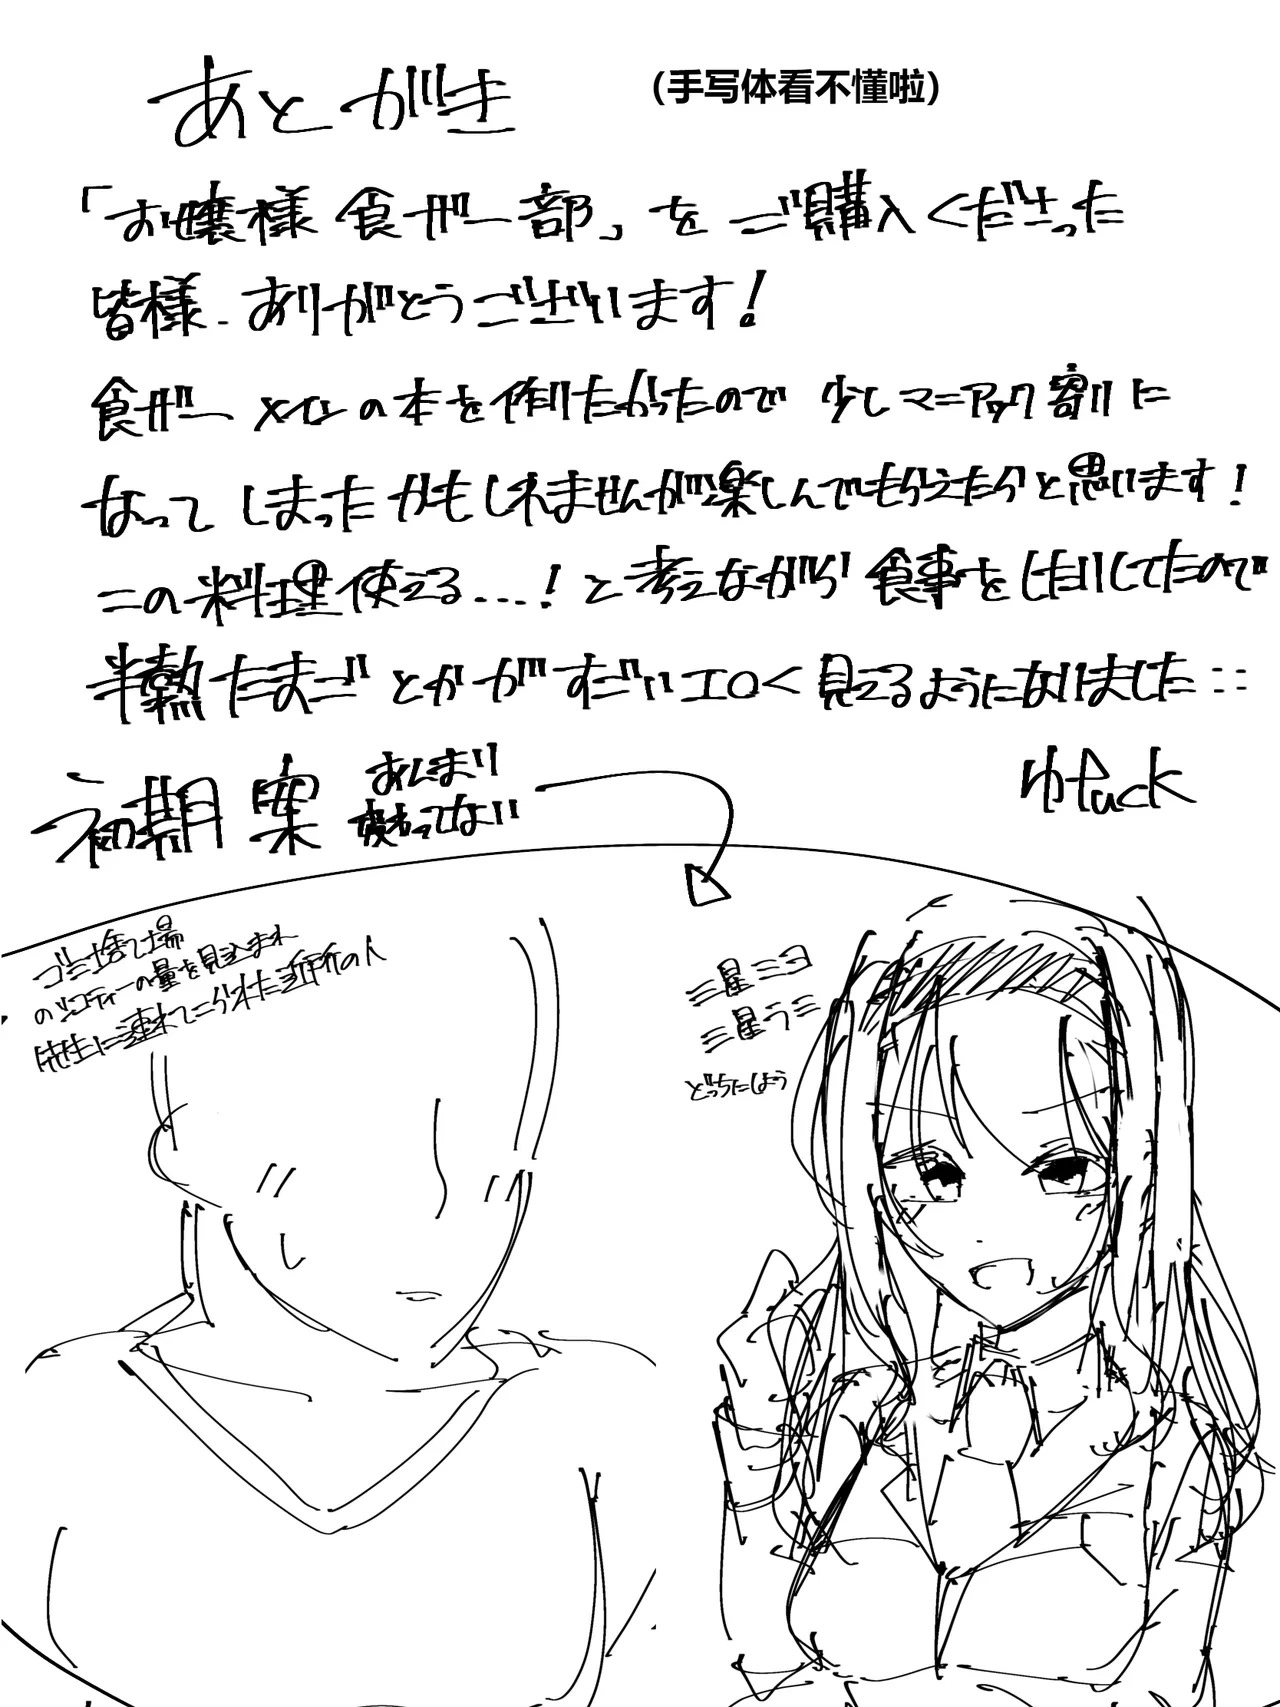 あとがき
(手写体看不懂啦)
「お嬢様食ザー部」をご購入くださった
皆様、ありがとうございます!
食ザーメインの本を作りたかったので少しマニアック寄りに
なってしまったかもしれませんが楽しんでもらえたらと思います!
この料理使える…!と考えながら食事をしたりしてたので
半熟たまごとかがすごいエロく見えるようになりました…
初期案
あんまり
変わってない
ゴミ捨て場
の量を見込まれ
先生に連れてこられた近所の人
三星ミコ
三星ラミ
どっちにしよう